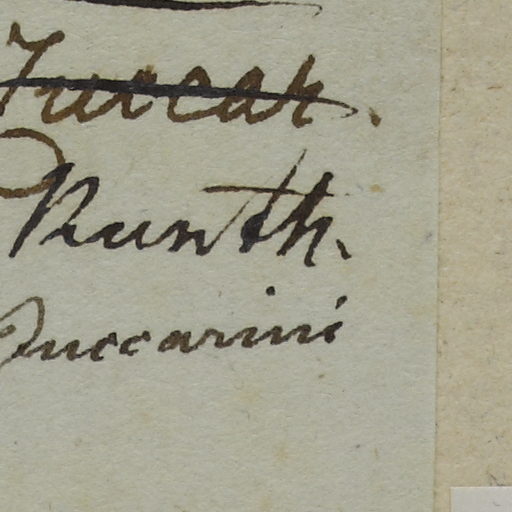 Zuccar.
Kunth.
Zuccarini